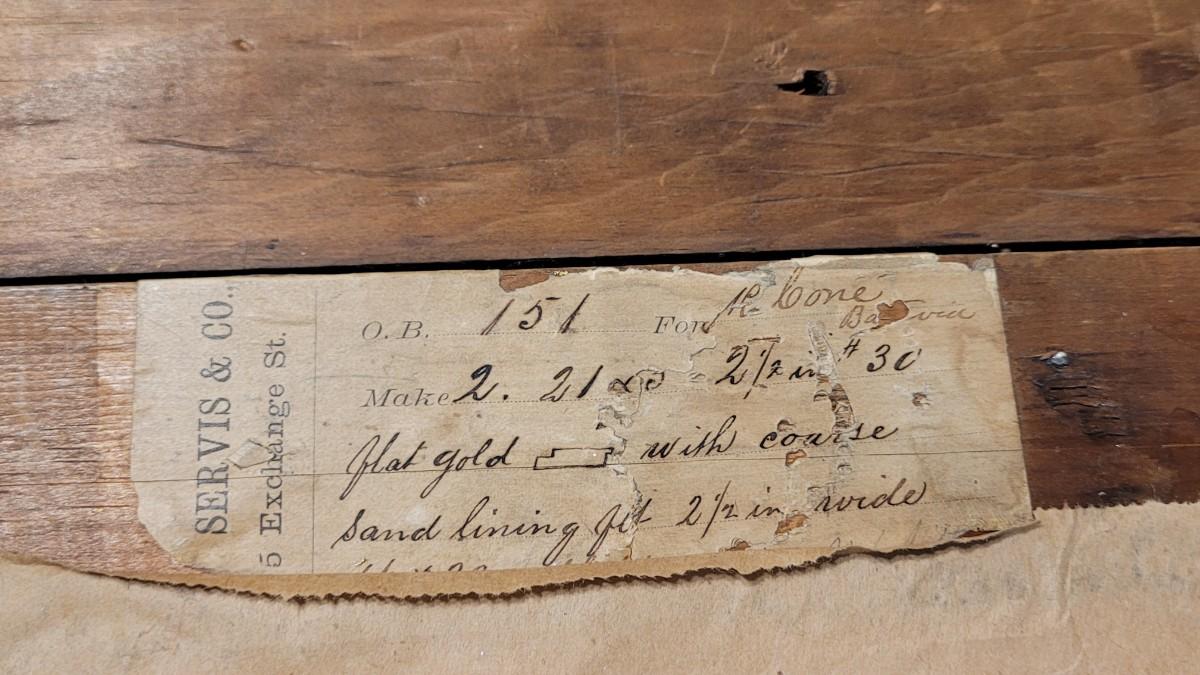 SERVIS & CO.,
5 Exchange St.
O. B. 151 For H. Cone
Batavia
Make 2. 21 x 2½ in #30
flat gold with course
sand lining flt 2½ in wide